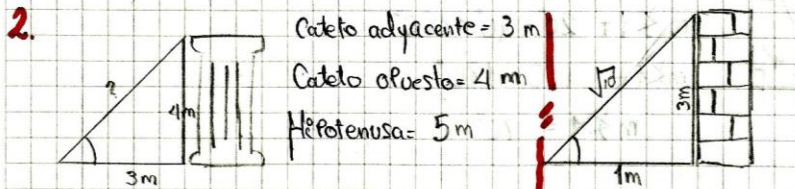 2.
Cateto adyacente = 3 m
Cateto opuesto = 4 m
Hipotenusa = 5 m
?
4m
3m
√10
3m
1m